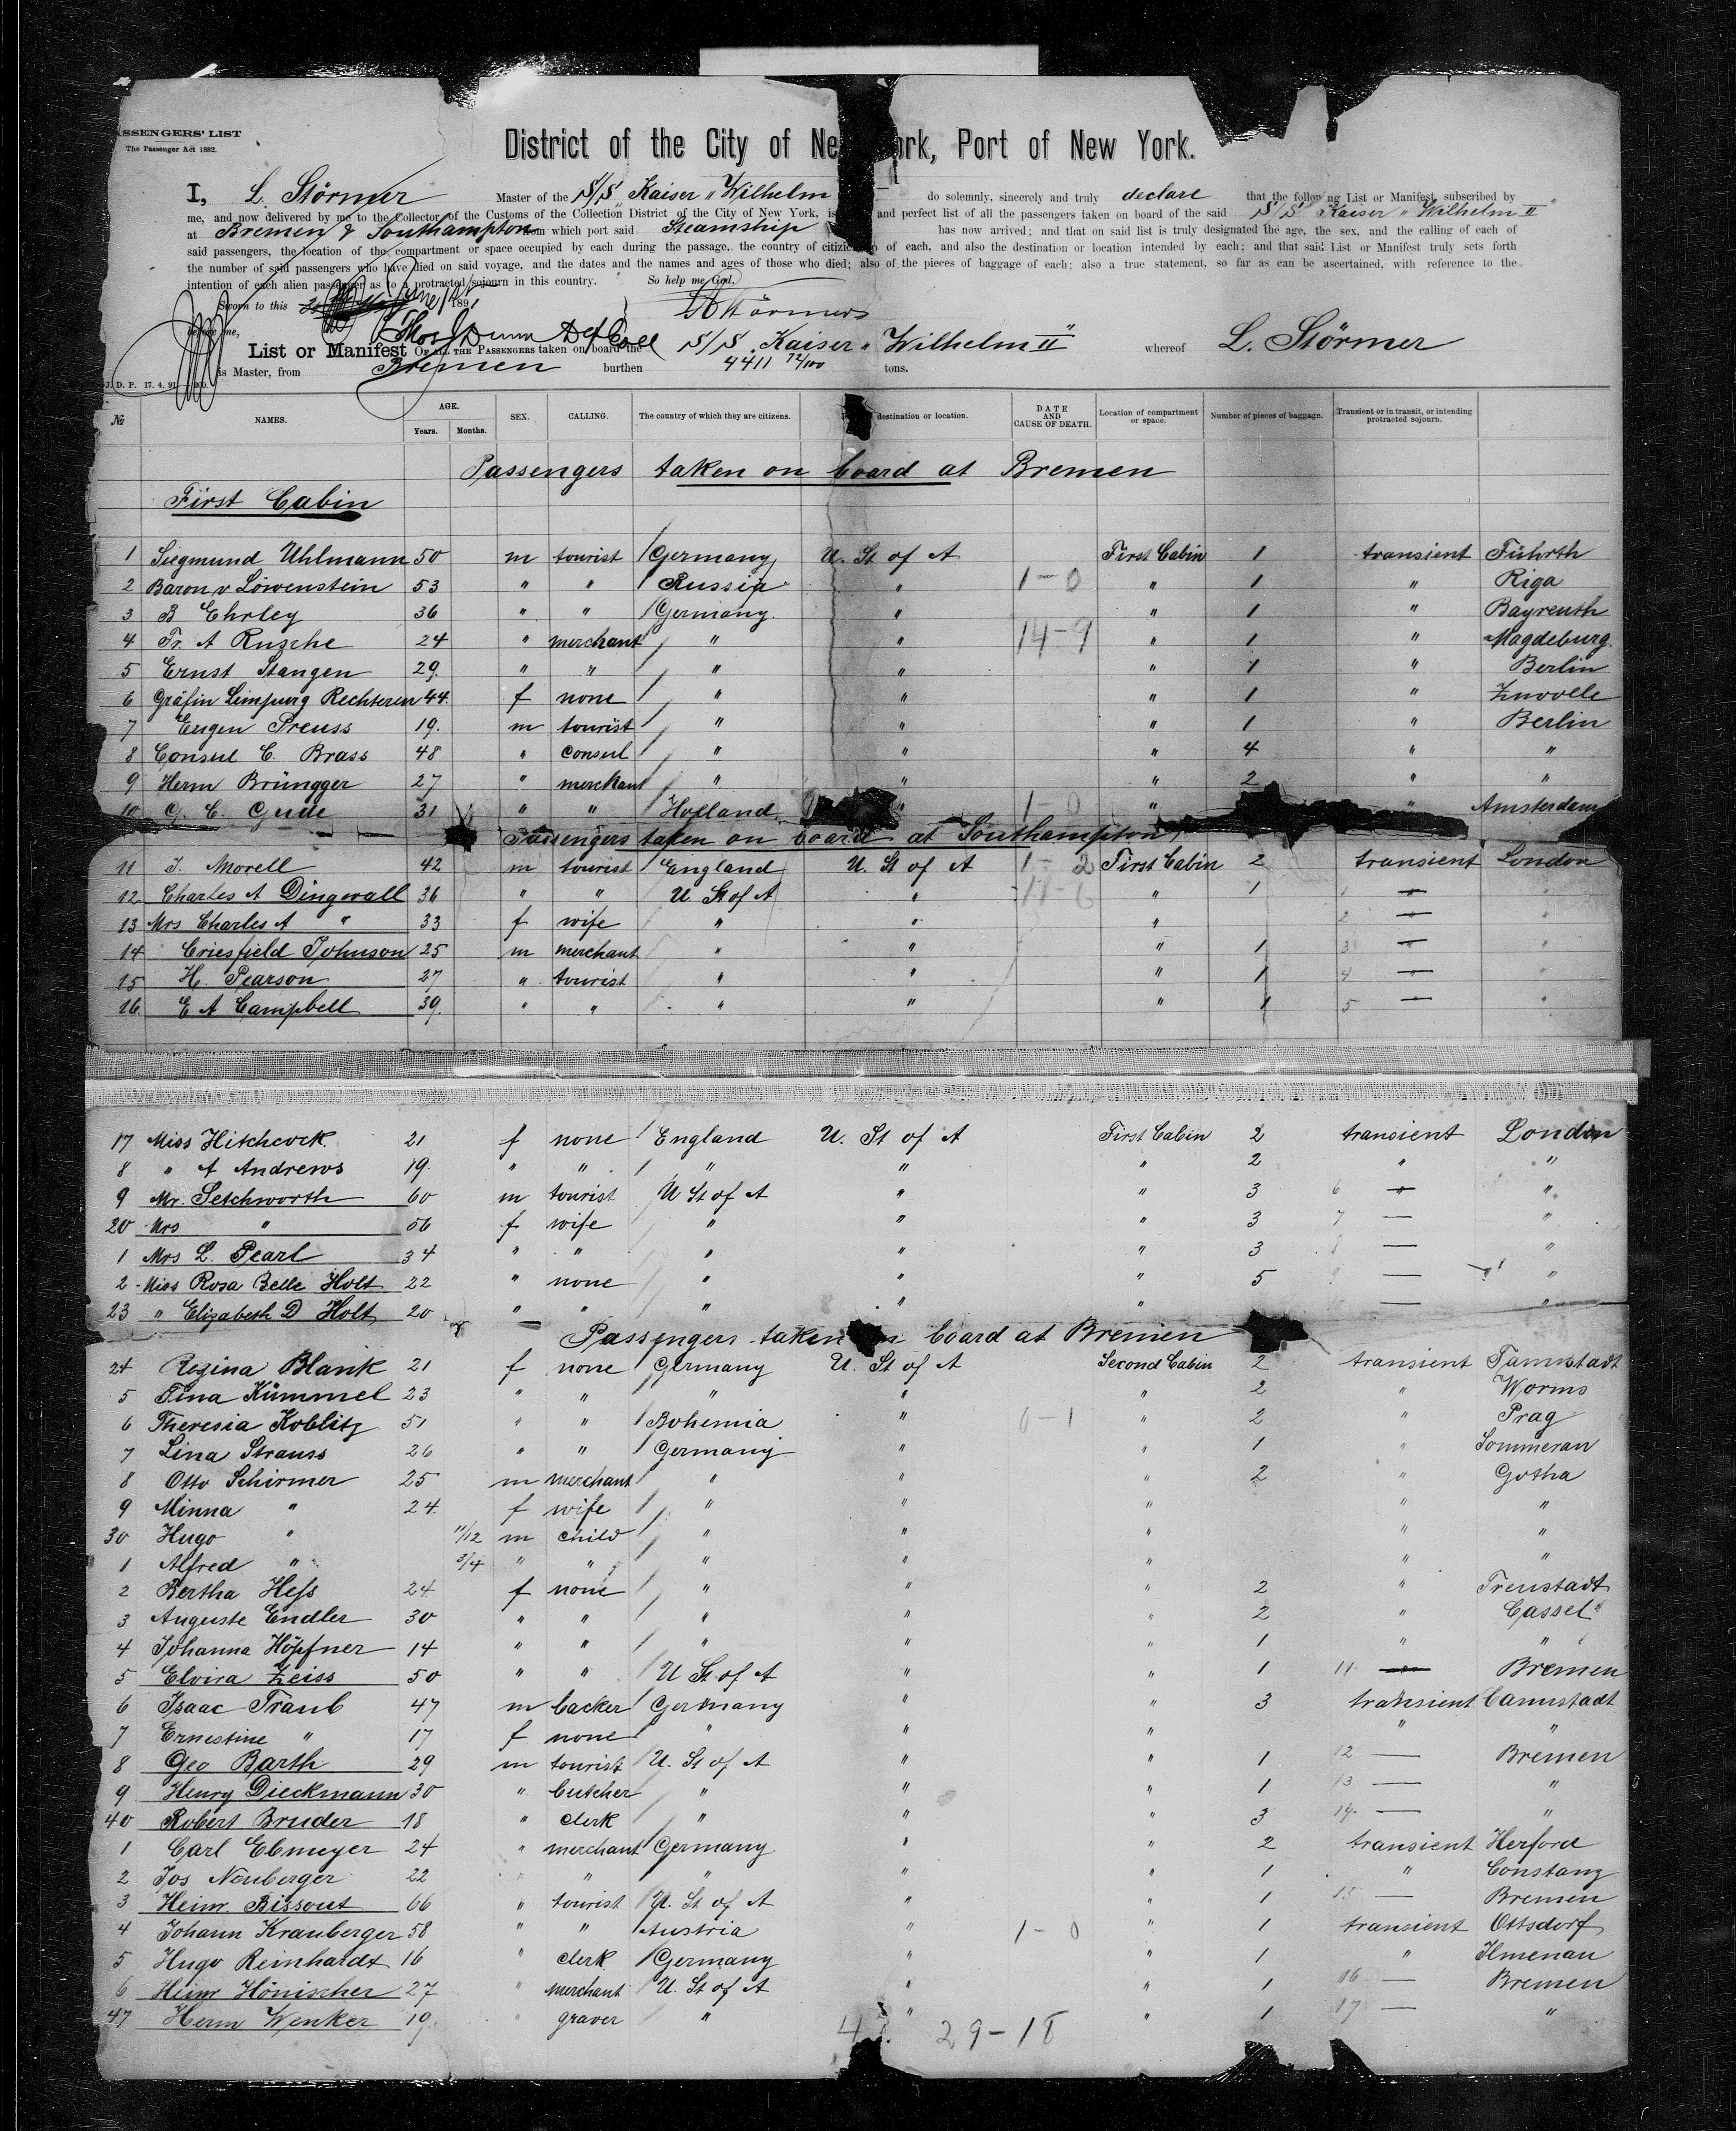 PASSENGERS' LIST
The Passenger Act 1882.
District of the City of New York, Port of New York.
I, L. Störmer Master of the S/S „Kaiser „ Wilhelm do solemnly, sincerely and truly declare that the following List or Manifest, subscribed by
me, and now delivered by me to the Collector of the Customs of the Collection District of the City of New York, is and perfect list of all the passengers taken on board of the said S/S Kaiser „ Wilhelm II"
at Bremen & Southampton from which port said Steamship has now arrived; and that on said list is truly designated the age, the sex, and the calling of each of
said passengers, the location of the compartment or space occupied by each during the passage, the country of citizenship of each, and also the destination or location intended by each; and that said List or Manifest truly sets forth
the number of said passengers who have died on said voyage, and the dates and the names and ages of those who died; also of the pieces of baggage of each; also a true statement, so far as can be ascertained, with reference to the
intention of each alien passenger as to a protracted sojourn in this country. So help me God,
Sworn to this June 189 LStörmer
before me,
List or Manifest OF ALL THE PASSENGERS taken on board the S/S „Kaiser „ Wilhelm II" whereof L. Störmer
J. D. P. 17. 4. 91 is Master, from Bremen burthen 4411 72/100 tons.
№ NAMES. AGE. Years. Months. SEX. CALLING. The country of which they are citizens. destination or location. DATE AND CAUSE OF DEATH. Location of compartment or space. Number of pieces of baggage. Transient or in transit, or intending protracted sojourn.
Passengers taken on board at Bremen
First Cabin
1 Siegmund Uhlmann 50 m tourist Germany U. St of A First Cabin 1 transient Fürth
2 Baron v Löwenstein 53 " " Russia " 1-0 " 1 " Riga
3 B Ehrley 36 " " Germany " " 1 " Bayreuth
4 Fr. A Rusche 24 " merchant " " 14-9 " 1 " Magdeburg
5 Ernst Stangen 29 " " " " " 1 " Berlin
6 Gräfin Limpurg Rechteren 44 f none " " " 1 "
7 Eugen Preuss 19 m tourist " " " 1 " Berlin
8 Consul C. Brass 48 " consul " " " 4 " "
9 Herm Brüngger 27 " merchant " " " 2 " "
10 G. C. Gude 31 " " Holland " 1-0 " " Amsterdam
Passengers taken on board at Southampton
11 J. Morell 42 m tourist England U. St of A 1-2 First Cabin 2 transient London
12 Charles A Dingwall 36 " " U. St of A " " 1 1 — "
13 Mrs Charles A " 33 f wife " " " 2 — "
14 Criesfield Johnson 25 m merchant " " " 1 3 — "
15 H. Pearson 27 " tourist " " " 1 4 — "
16 E A Campbell 39 " " " " " 1 5 — "
17 Miss Hitchcock 21 f none England U. St of A First Cabin 2 transient London
8 " A Andrews 19 " " " " " 2 " "
9 Mr. Setchworth 60 m tourist U St of A " " 3 6 — "
20 Mrs " 56 f wife " " " 3 7 — "
1 Mrs L. Pearl 34 " " " " " 3 8 — "
2 Miss Rosa Belle Holt 22 " none " " " 5 9 — "
23 " Elizabeth D Holt 20 " " " " " — "
Passengers taken on board at Bremen
24 Regina Blank 21 f none Germany U. St of A Second Cabin 2 transient
5 Tina Kümmel 23 " " " " " 2 " Worms
6 Theresia Koblitz 51 " " Bohemia " 0-1 " 2 " Prag
7 Lina Strauss 26 " " Germany " " 1 " Sommerau
8 Otto Schirmer 25 m merchant " " " 2 " Gotha
9 Minna " 24 f wife " " " " "
30 Hugo " 11/12 m child " " " " "
1 Alfred " 3/4 " " " " " " "
2 Bertha Hess 24 f none " " " 2 "
3 Auguste Endler 30 " " " " " 2 " Cassel
4 Johanna Höpfner 14 " " " " " 1 " "
5 Elvira Zeiss 50 " " U St of A " " 1 11 — Bremen
6 Isaac Traub 47 m backer Germany " " 3 transient Cannstadt
7 Ernestine " 17 f none " " " " "
8 Geo Barth 29 m tourist U. St of A " " 1 12 — Bremen
9 Henry Dieckmann 30 " butcher " " " 1 13 — "
40 Robert Bruder 18 " clerk " " " 3 14 — "
1 Carl Ebmeyer 24 " merchant Germany " " 2 transient Herford
2 Jos Neuberger 22 " " " " " 1 " Constanz
3 Heinr. Bissout 66 " tourist U. St of A " " 1 15 — Bremen
4 Johann Krauberger 58 " " Austria " 1-0 " 1 transient Ottsdorf
5 Hugo Reinhardt 16 " clerk Germany " " 1 " Ilmenau
6 Heinr Hönischer 27 " merchant U. St of A " " 1 16 — Bremen
47 Herm Wenker 19 " graver " " " 1 17 — "
47. 29-18